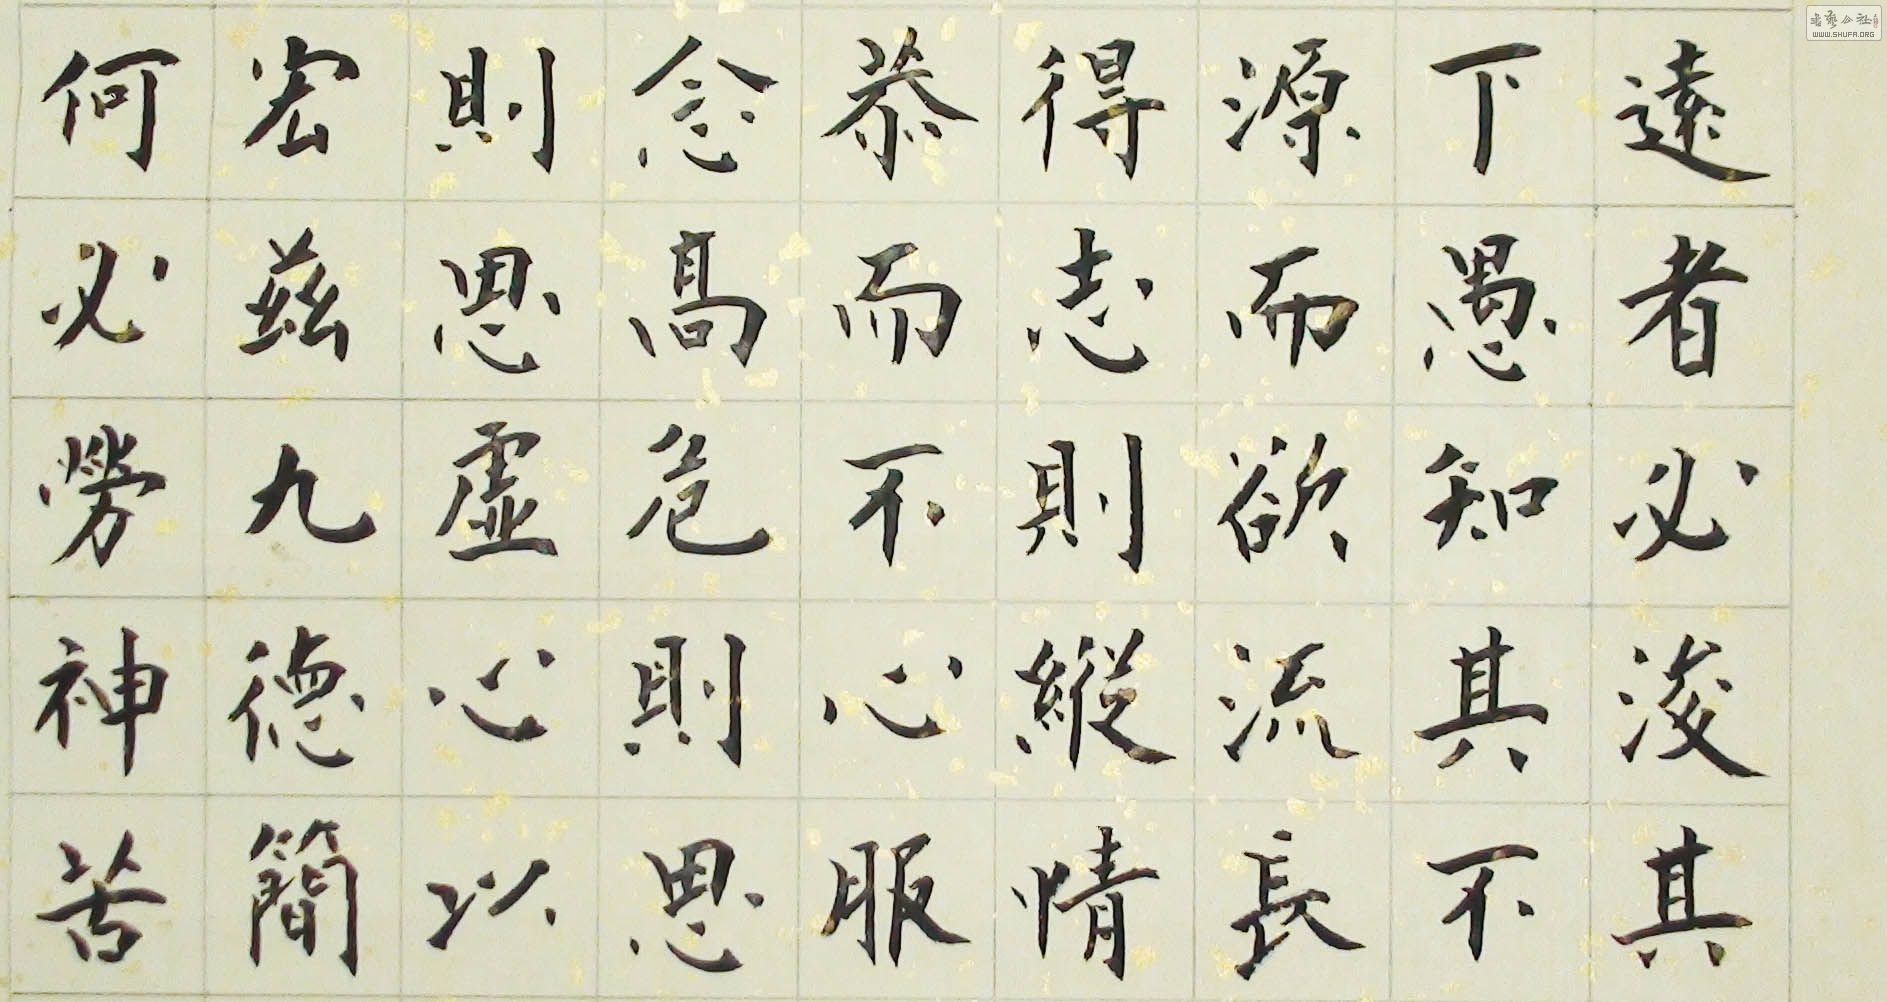 遠者必浚其
下愚知其不
源而欲流長
得志則縱情
恭而不心服
念高危則思
則思虛心以
宏茲九德簡
何必勞神苦
書藝公社
WWW.SHUFA.ORG